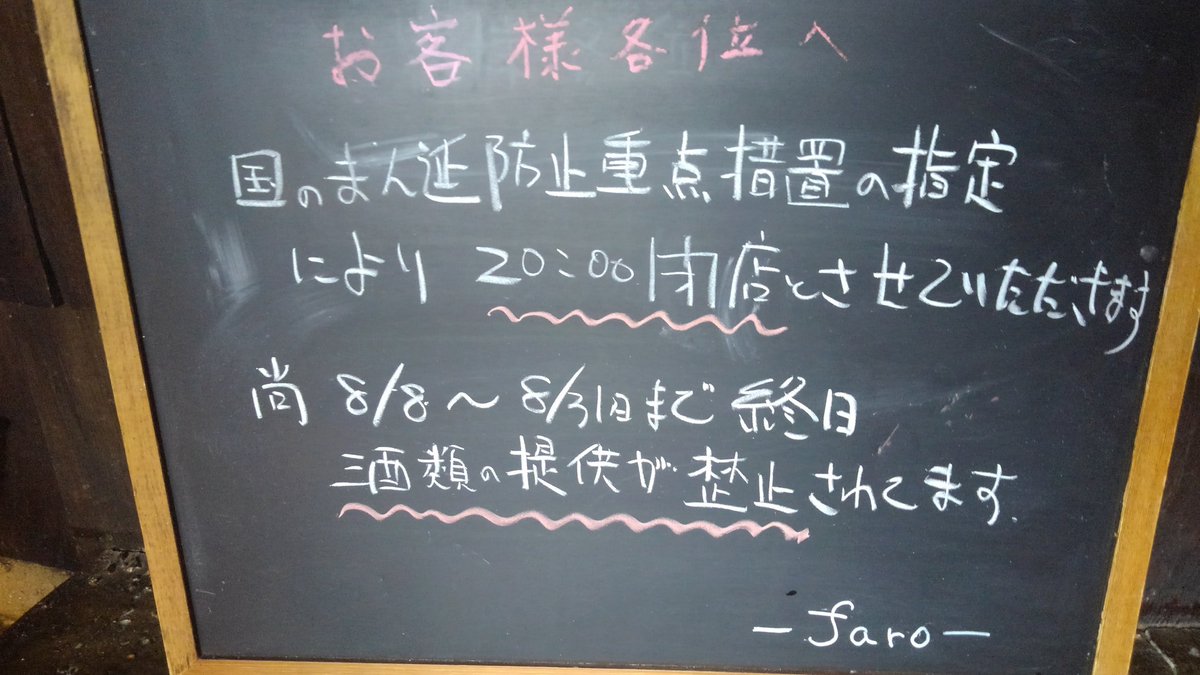 お客様各位へ
国のまん延防止重点措置の指定
により 20:00閉店とさせていただきます
尚 8/8〜8/31日まで 終日
酒類の提供が禁止されてます.
ーfaroー